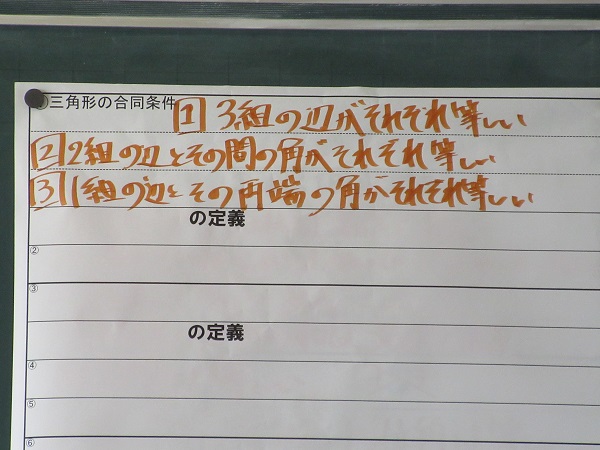 ①三角形の合同条件 1 3組の辺がそれぞれ等しい
2 2組の辺とその間の角がそれぞれ等しい
3 1組の辺とその両端の角がそれぞれ等しい
の定義
②
③
の定義
④
⑤
⑥